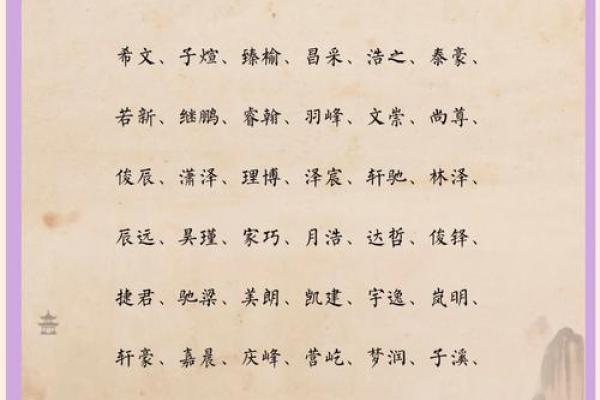 希文、子煊、臻榆、昌采、浩之、泰豪、
若新、继鹏、睿翰、羽峰、文崇、尚尊、
俊辰、潇泽、理博、泽宸、轩驰、林泽、
辰远、昊瑾、家巧、月浩、达哲、俊铎、
捷君、驰梁、美朗、凯建、宇逸、岚明、
轩豪、嘉晨、庆峰、营屹、梦润、子溪、